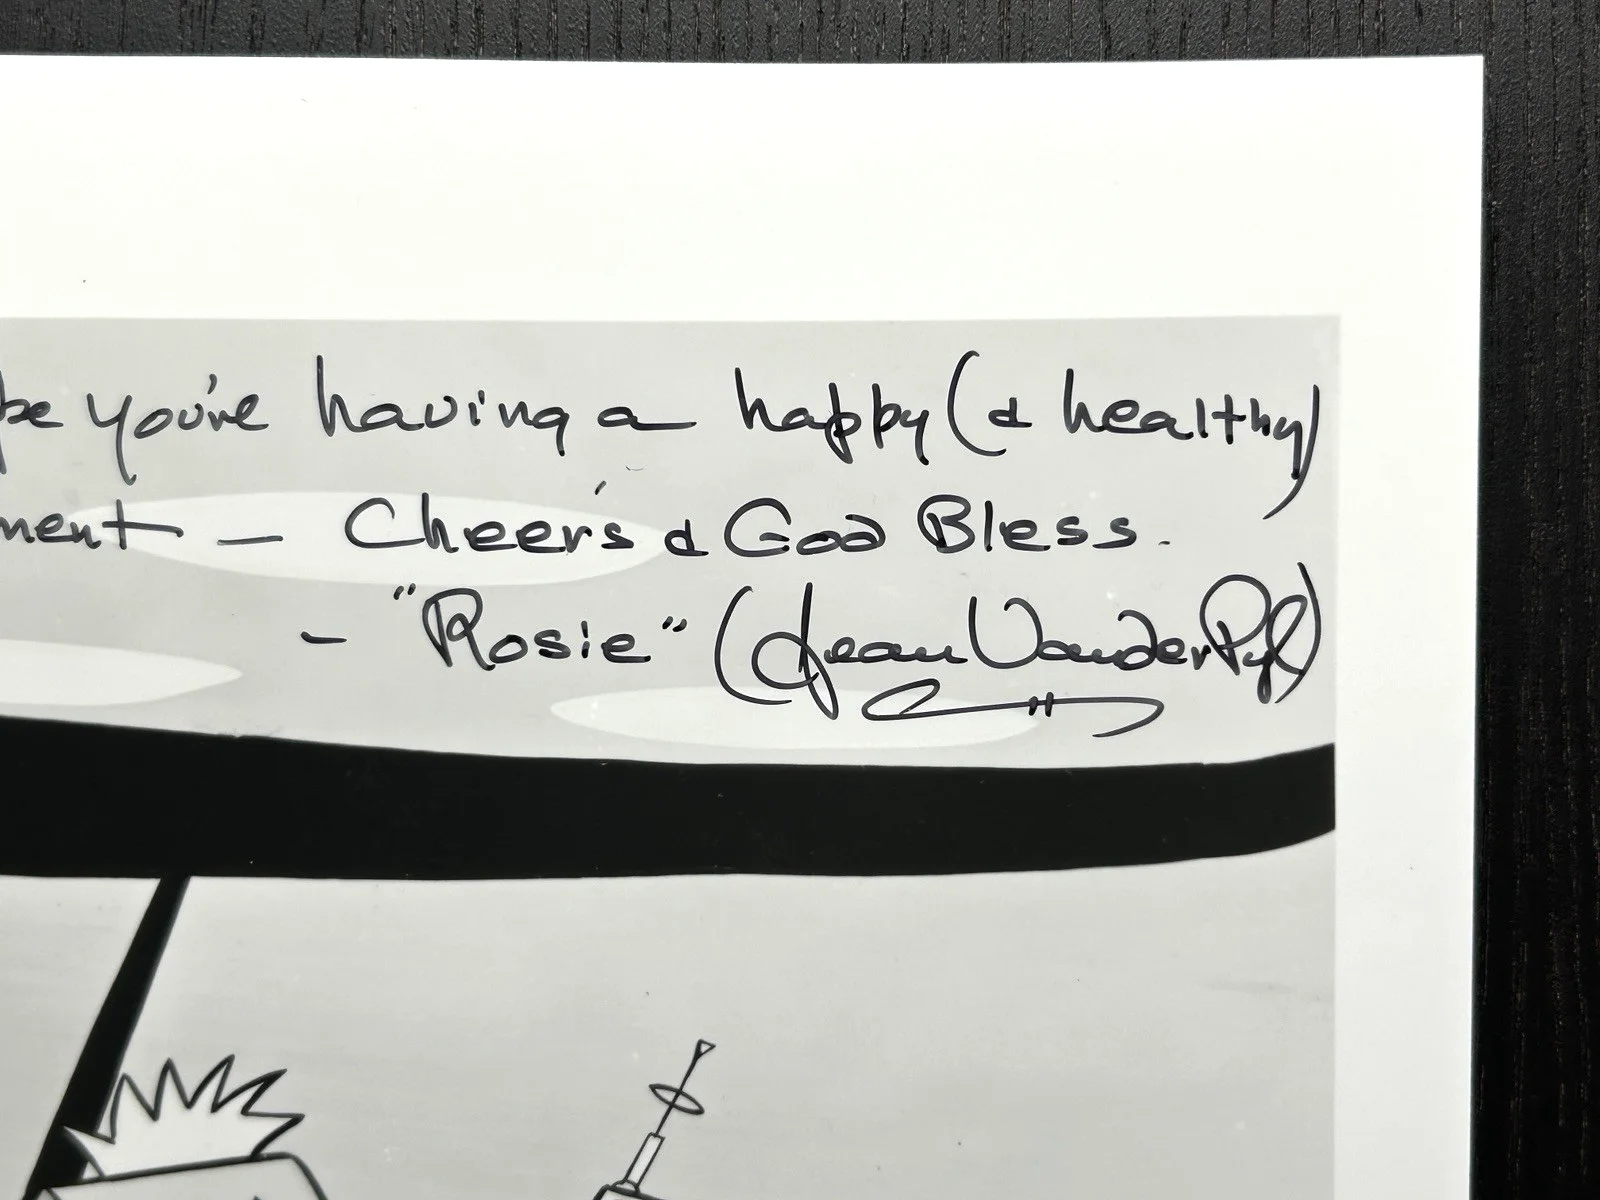 you're having a happy (& healthy)
ment — Cheers & God Bless.
- "Rosie" (Jean VanderPyl)